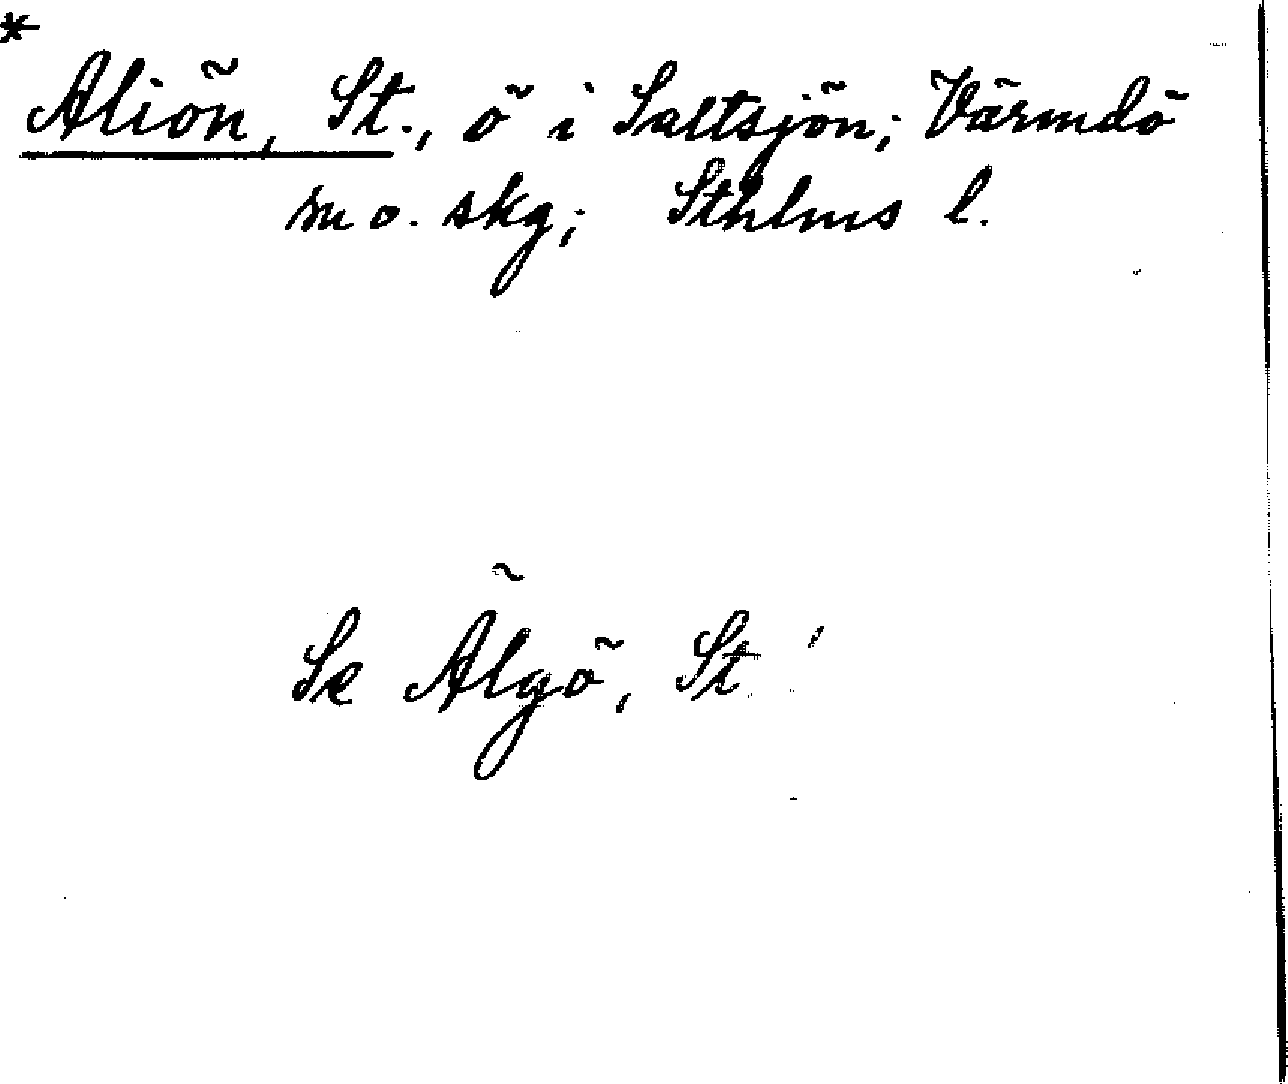 *
Aliön, St., ö i Saltsjön; Värmdö
m o. skg; Sthlms l.
Se Älgö, St.